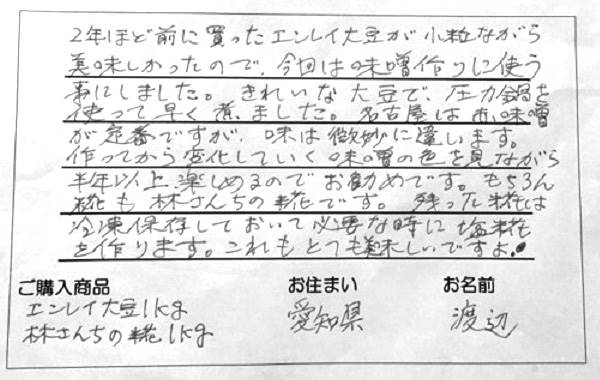 2年ほど前に買ったエンレイ大豆が小粒ながら
美味しかったので、今回は味噌作りに使う
事にしました。きれいな大豆で、圧力鍋を
使って早く煮ました。名古屋は赤味噌
が定番ですが、味は微妙に違います。
作ってから変化していく味噌の色を見ながら
半年以上楽しめるのでお勧めです。もちろん
糀も林さんちの糀です。残った糀は
冷凍保存しておいて必要な時に塩糀
を作ります。これもとても美味しいですよ。
ご購入商品 お住まい お名前
エンレイ大豆1kg 愛知県 渡辺
林さんちの糀1kg